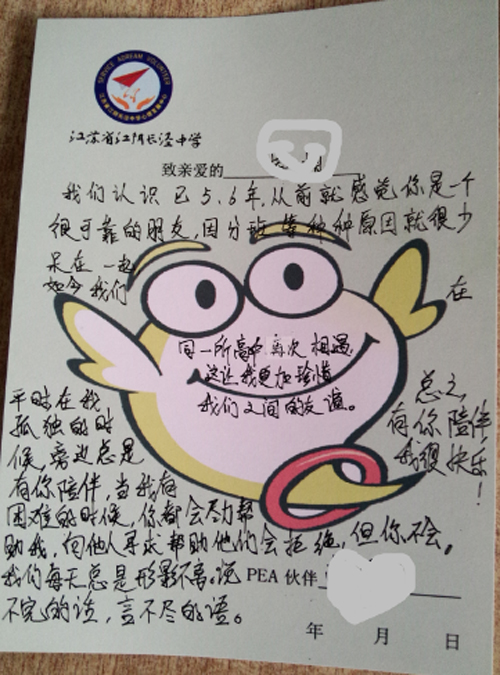 SERVICE ADREAM VOLUNTEER
江苏省江阴长泾中学
致亲爱的
我们认识已5.6年,从前就感觉你是一个
很可靠的朋友,因分班等种种原因就很少
呆在一起
如今我们在
同一所高中再次相遇,
这让我更加珍惜
我们之间的友谊。
平时在我
孤独的时
候,旁边总是
有你陪伴,当我有
困难的时候,你都会尽力帮
助我,向他人寻求帮助他们会拒绝,但你不会。
我们每天总是形影不离。说
不完的话,言不尽的语。
总之,
有你陪伴
我很快乐
!
PEA 伙伴
年 月 日